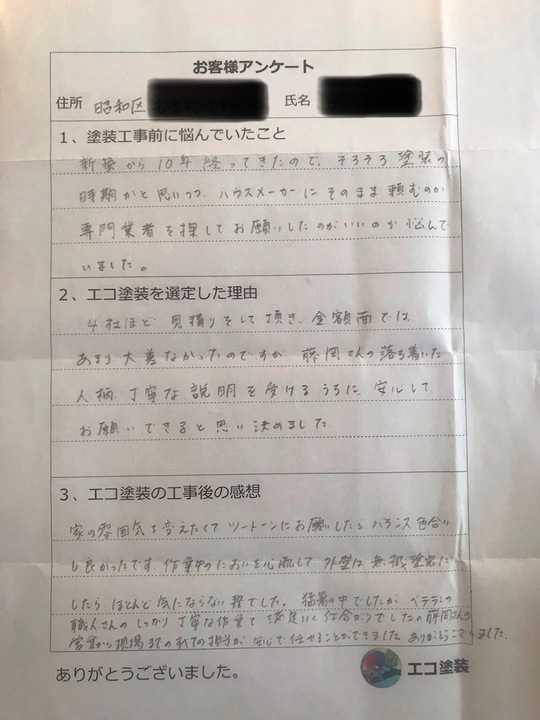 お客様アンケート
住所 昭和区 氏名
1、塗装工事前に悩んでいたこと
新築から10年経ってきたので、そろそろ塗装の
時期かと思いつつ、ハウスメーカーにそのまま頼むのか
専門業者を探してお願いしたのがいいのか悩んで
いました。
2、エコ塗装を選定した理由
4社ほど見積りをして頂き、金額面では
あまり大差なかったのですが、藤岡さんの落ち着いた
人柄、丁寧な説明を受けるうちに、安心して
お願いできると思い決めました。
3、エコ塗装の工事後の感想
家の雰囲気を変えたくてツートーンにお願いしたらバランス色合い
も良かったです。作業中のにおいを心配して外壁は無
したらほとんど気にならない程でした。猛暑の中でしたが、ベテランの
職人さんのしっかり丁寧な作業で満足いく仕上がりでした。藤岡さんの
営業から現場までの担当が安心で任せることができました。ありがとうございました。
ありがとうございました。
エコ塗装